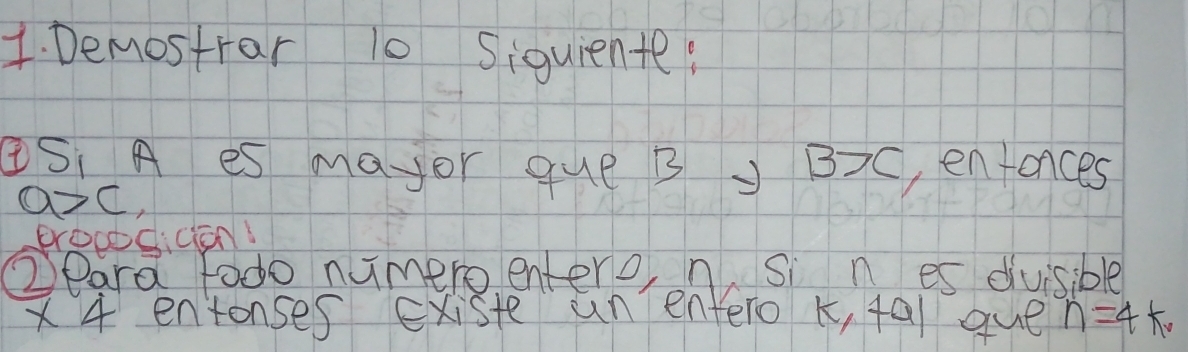 1. Demostrar lo siguiente:
① Si A es mayor que B y B>C, entonces
a>c,
proposición:
② Para todo número entero, n si n es divisible
x 4 entonses Existe un entero k, tal que n=4k.